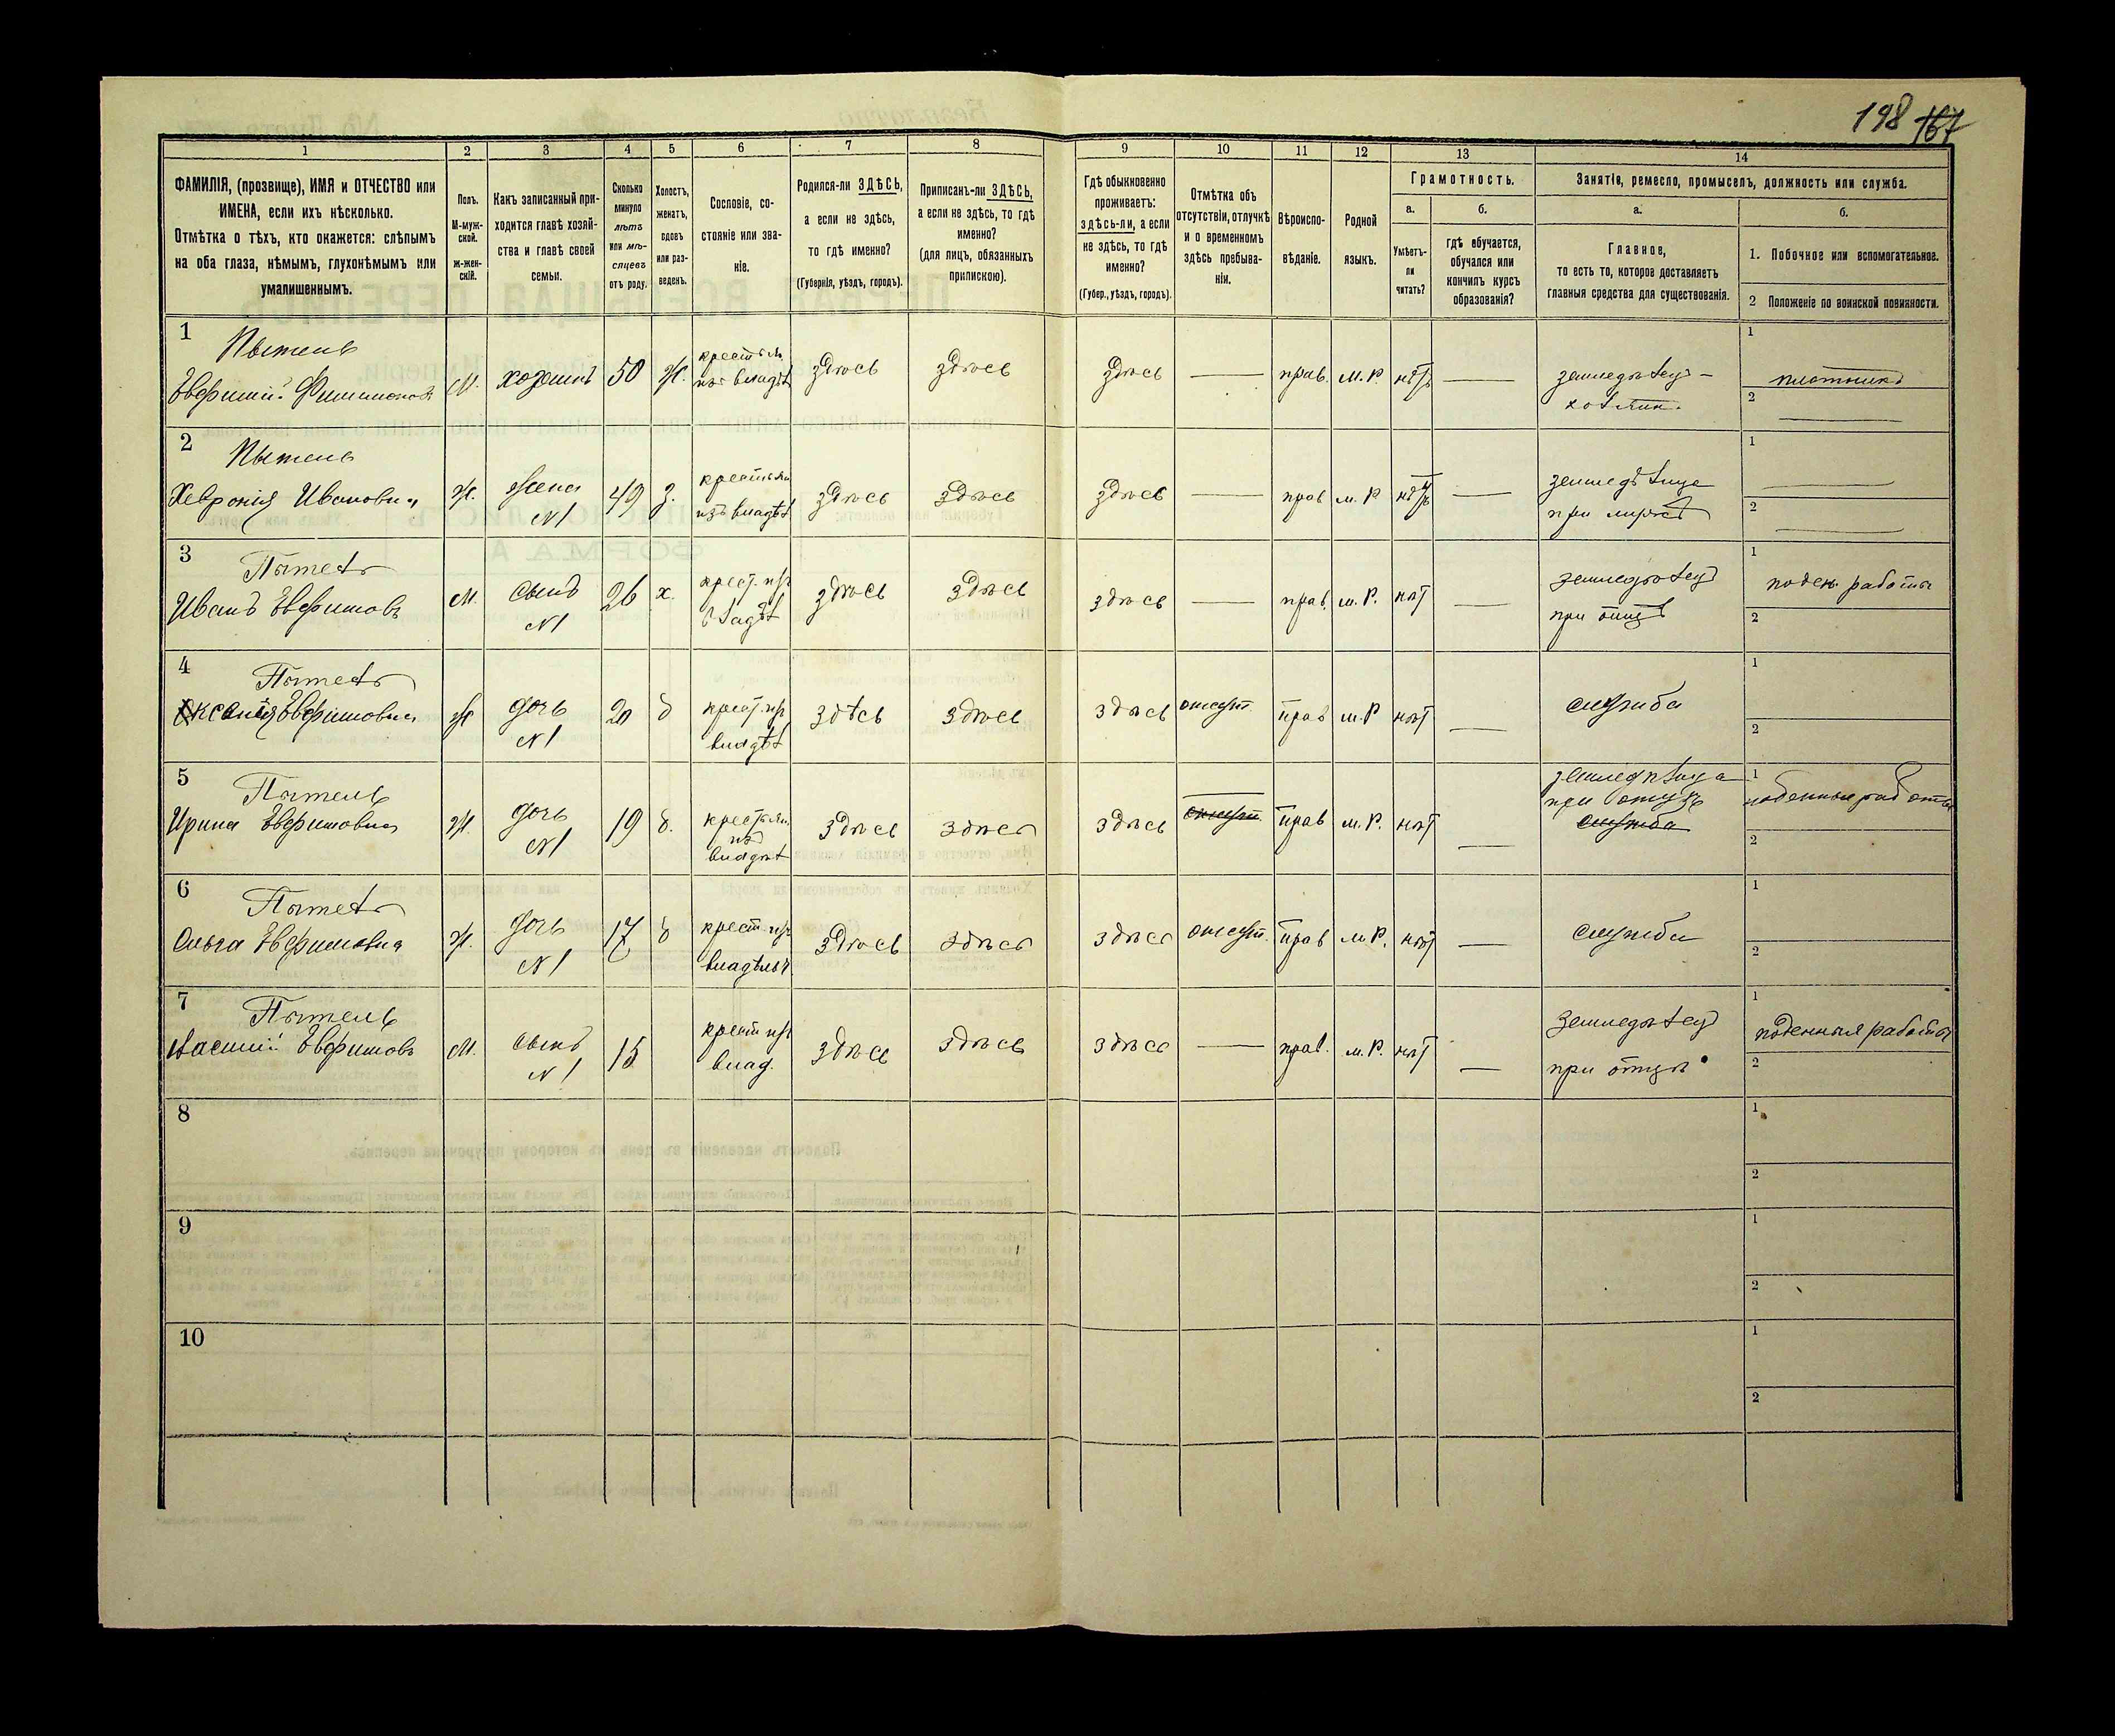 198 167
1 2 3 4 5 6 7 8 9 10 11 12 13 14
ФАМИЛІЯ, (прозвище), ИМЯ и ОТЧЕСТВО или
ИМЕНА, если ихъ нѣсколько.
Отмѣтка о тѣхъ, кто окажется: слѣпымъ
на оба глаза, нѣмымъ, глухонѣмымъ или
умалишеннымъ.
Полъ.
М-муж-
ской.
ж-жен-
скій.
Какъ записанный при-
ходится главѣ хозяй-
ства и главѣ своей
семьи.
Сколько
минуло
лѣтъ
или мѣ-
сяцевъ
отъ роду.
Холостъ,
женатъ,
вдовъ
или раз-
веденъ.
Сословіе, со-
стояніе или зва-
ніе.
Родился-ли ЗДѢСЬ,
а если не здѣсь,
то гдѣ именно?
(Губернія, уѣздъ, городъ).
Приписанъ-ли ЗДѢСЬ,
а если не здѣсь, то гдѣ
именно?
(для лицъ, обязанныхъ
припискою).
Гдѣ обыкновенно
проживаетъ:
здѣсь-ли, а если
не здѣсь, то гдѣ
именно?
(Губер., уѣздъ, городъ).
Отмѣтка объ
отсутствіи, отлучкѣ
и о временномъ
здѣсь пребыва-
ніи.
Вѣроиспо-
вѣданіе.
Родной
языкъ.
Грамотность.
а.
Умѣетъ-
ли
читать?
б.
гдѣ обучается,
обучался или
кончилъ курсъ
образованія?
Занятіе, ремесло, промыселъ, должность или служба.
а.
Главное,
то есть то, которое доставляетъ
главныя средства для существованія.
б.
1. Побочное или вспомогательное.
2 Положеніе по воинской повинности.
1
Пытель
Евфимій М. хозяинъ 50 ж. крестьян. здѣсь здѣсь здѣсь — прав. м. Р. нѣтъ — земледѣлец- 1 плотникъ
изъ владѣл
хозяин. 2 —
2
Пытель
Хеврония Ивановна ж. жена 49 з. крестьян здѣсь здѣсь здѣсь — прав м. Р нѣтъ — земледѣлица 1 —
N1 изъ владѣл при мужѣ 2 —
3
Пытель
Иванъ Евфимовъ М. сынъ 26 х. крест. изъ здѣсь здѣсь здѣсь — прав. м. Р. нѣт — земледѣлецъ 1 поден. работы
N1 владѣл при отцѣ 2
4
Пытель
Ксенія Евфимовна ж дочь 20 д крест. из здѣсь здѣсь здѣсь отсут. прав м. Р нѣт — служба 1
N1 владѣл 2
5
Пытель
Ирина Евфимовна ж. дочь 19 д. крестьян. здѣсь здѣсь здѣсь отсут. прав м. Р. нѣт — земледѣлица 1 поденныя работы
N1 из
владѣл при отцѣ
служба 2
6
Пытель
Ольга Евфимовна ж. дочь 17 д крест. из здѣсь здѣсь здѣсь отсут. прав м. Р. нѣт — служба 1
N1 владѣльч 2
7
Пытель
Василій Евфимовъ М. сынъ 15 крест. из здѣсь здѣсь здѣсь — прав. м. Р. нѣт — земледѣлецъ 1 поденныя работы
N1 влад. при отцѣ 2
8 1
2
9 1
2
10 1
2